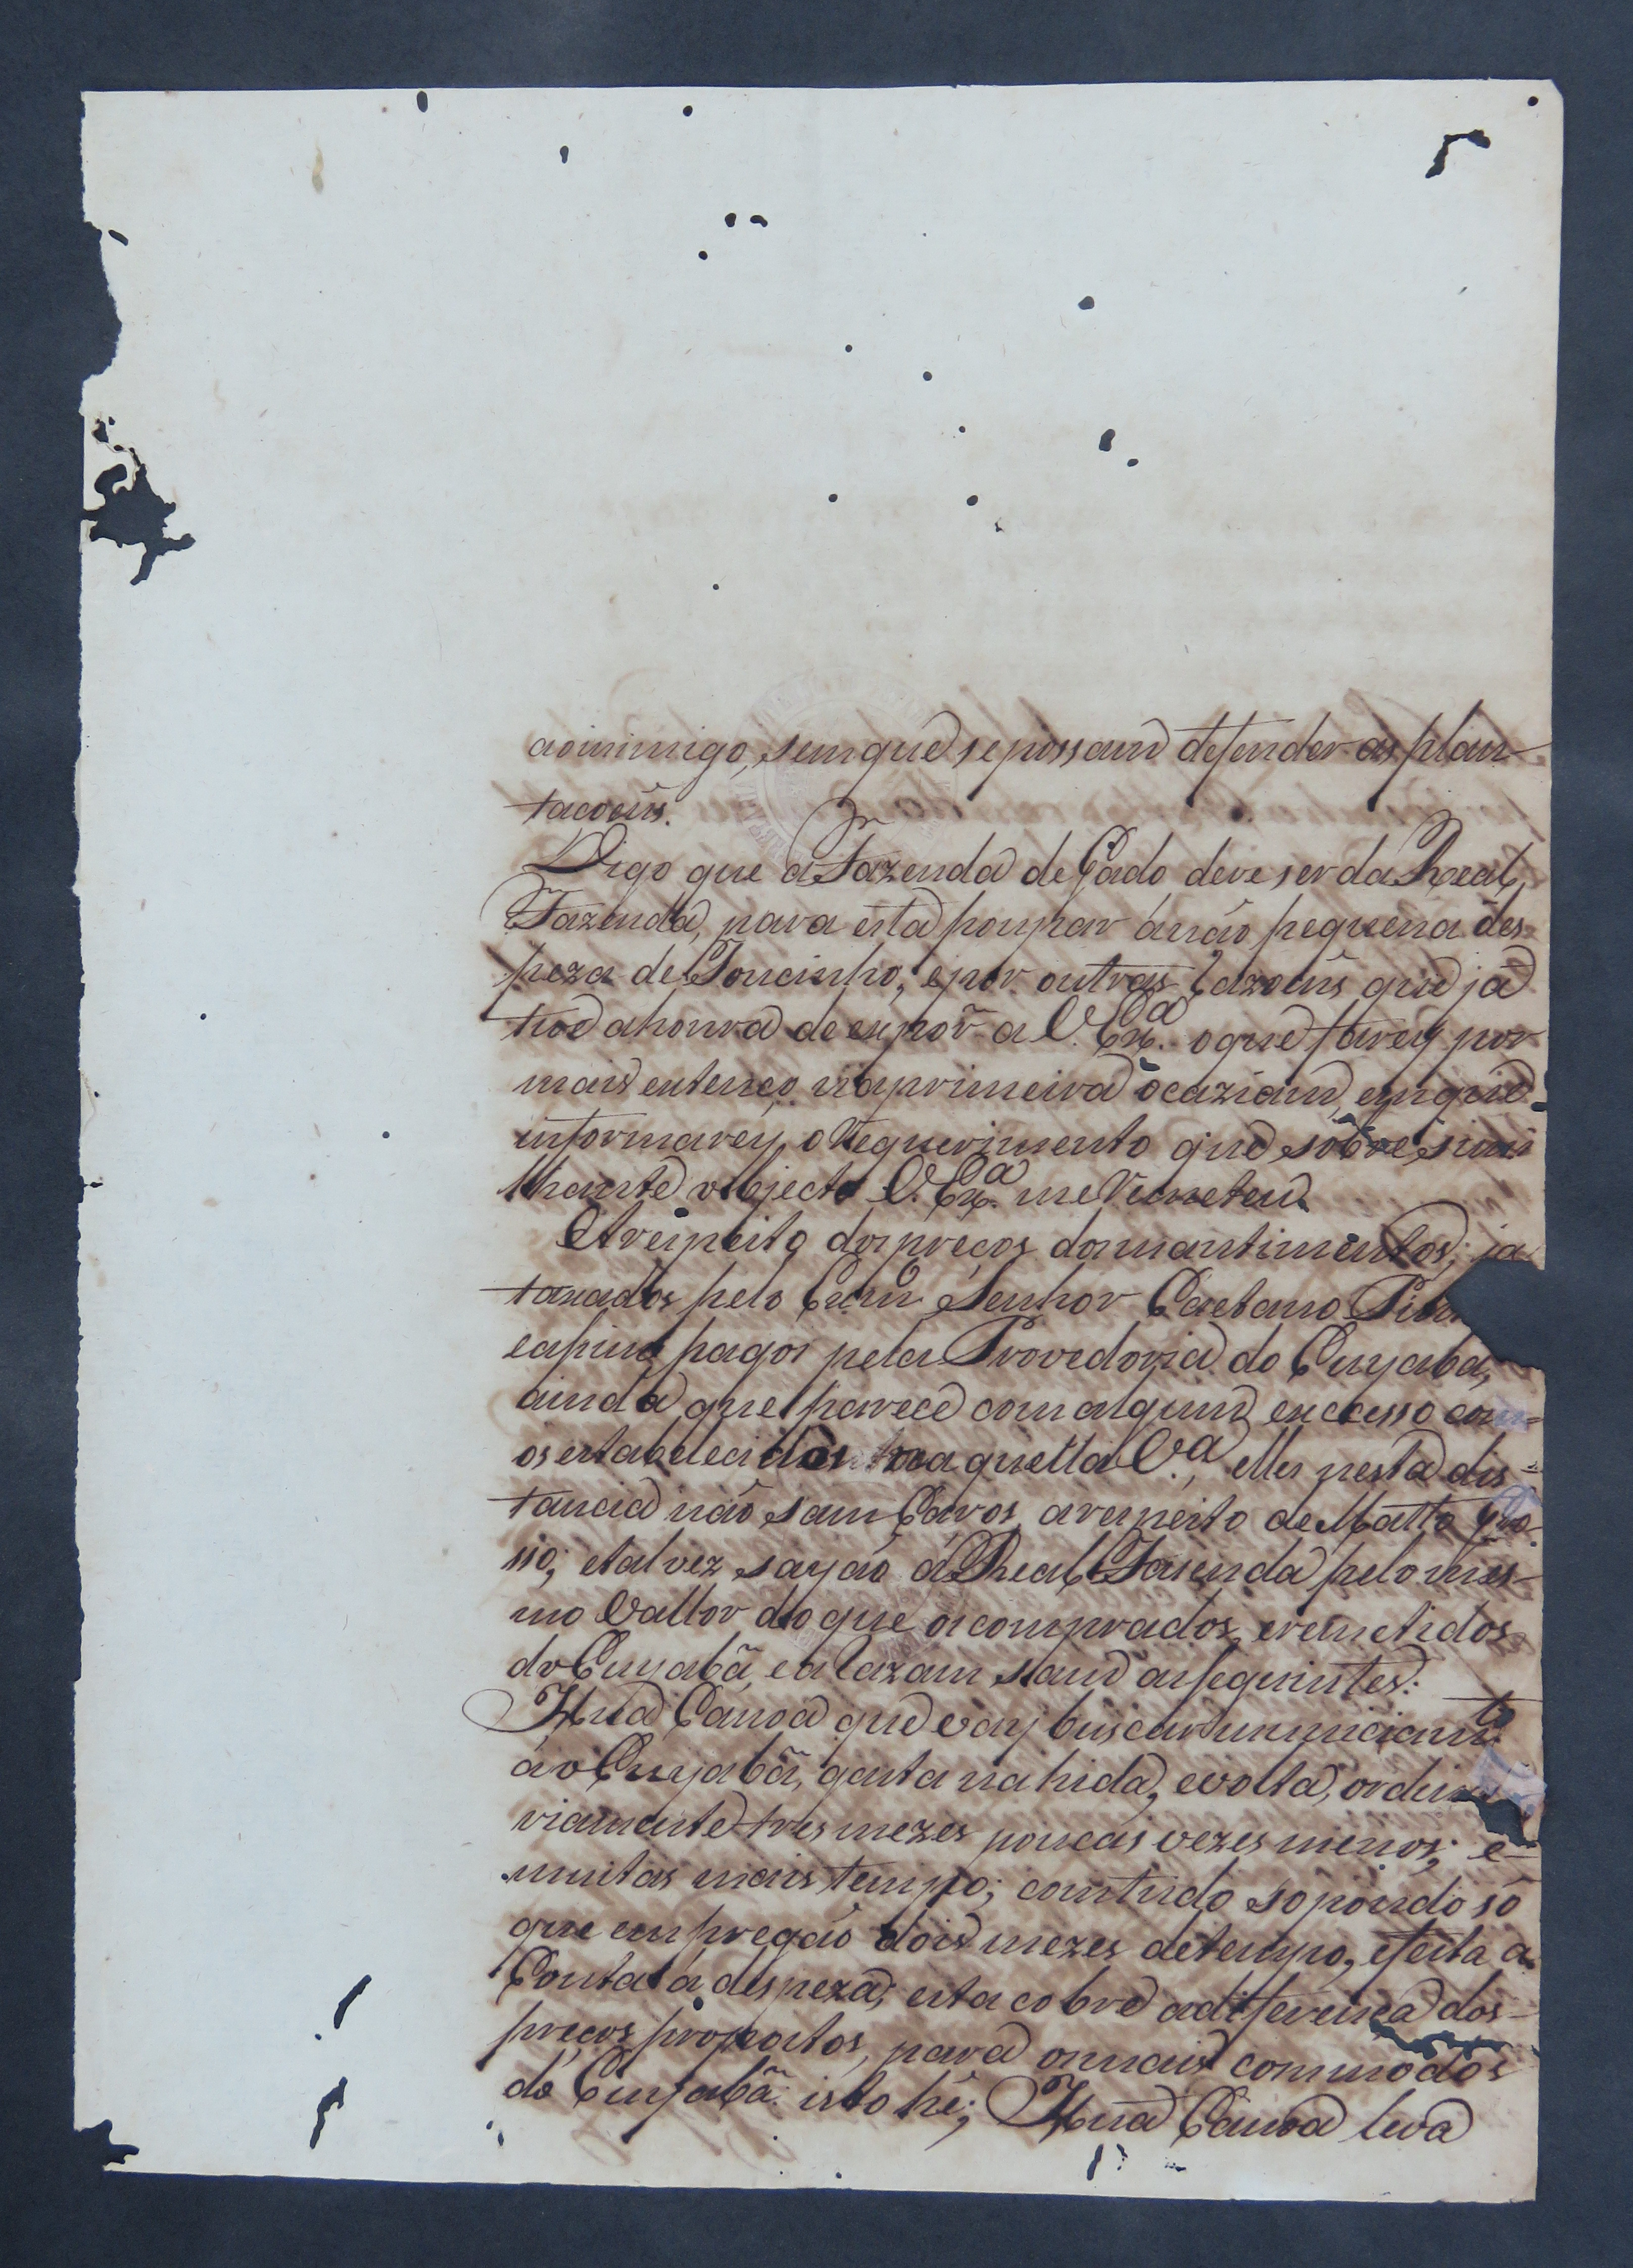 aoinimigo, semque sepossam defender as plan-
tacoens.
Digo que a Fazenda de Gado deve ser da Real
Fazenda, para esta poupar anaõ pequena des-
peza de Toucinho, epor outras razoens que já
tive ahonra de expor a V. Exª. oque farey por
mais extenço naprimeira ocaziam, emque
informarey o requerimento que sobre simi
lhante objecto V. Exª. me remeteu.
Arespeito dospreços domantimentos, ja
taxados pelo Exmº Senhor Caetano Pin
easim pagos pela Provedoria do Cuyaba,
ainda que parece comalgum excesso com
os estabelecidos naquella Vª, elles nesta dis-
tancia não sam Caros arespeito de Matto Gro-
sso; etalvez sayaõ á Real Fazenda pelo mes-
mo Vallor doque oscomprados, eremetidos
do Cuyabã, earazam sam asseguintes:
Hua Canoa que vay buscar municiamto
ao Cuyabã, gasta na hida, evolta, ordin
riamente tres mezes poucas vezes menos, e
muitas mais tempo; comtudo sopondo só
que empregaõ dois mezes detempo, efeita a
Conta á despeza, esta cobre adiferença dos
preços propostos, para osmais commodos
do Cuyabã: isto hé; Hua Canoa leva